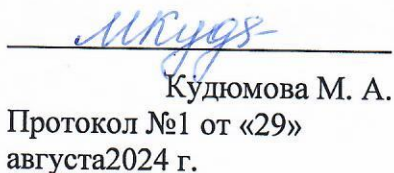 Кудюмова М. А.
Протокол №1 от «29»
августа2024 г.